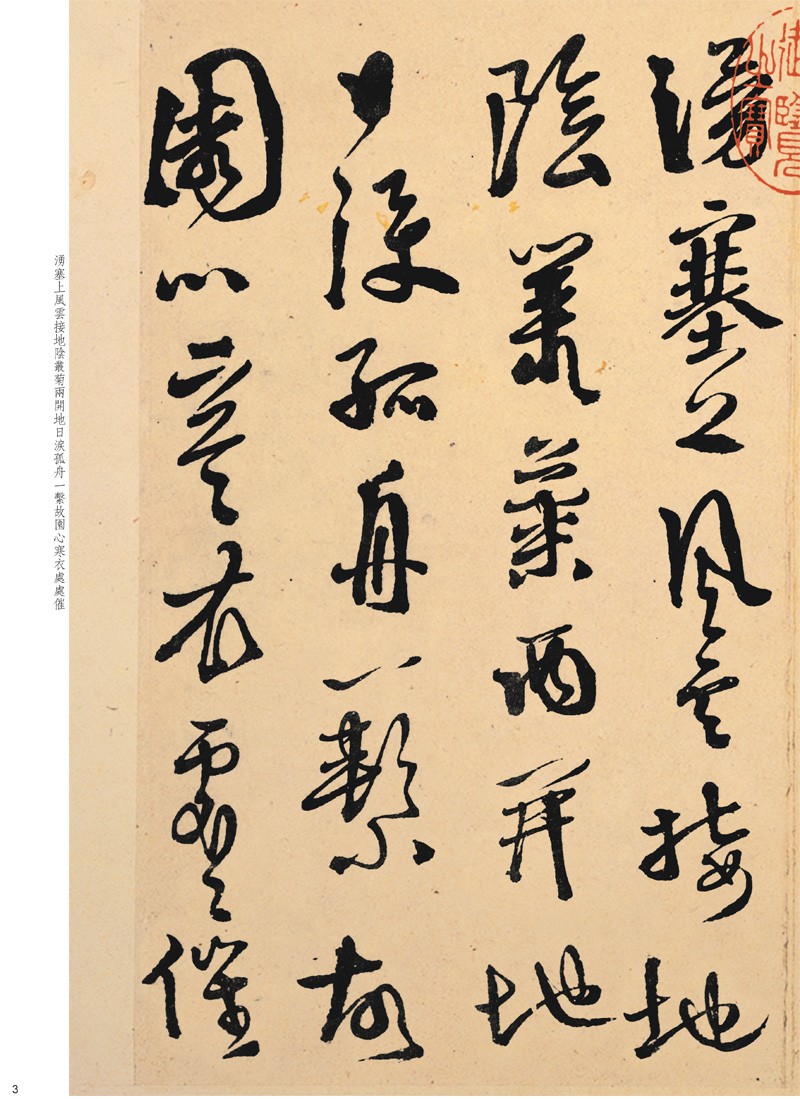 御覽之寶
湧塞上風雲接地
陰叢菊兩開地
日淚孤舟一繫故
園心寒衣處〻催
湧塞上風雲接地陰叢菊兩開地日淚孤舟一繫故園心寒衣處處催
3